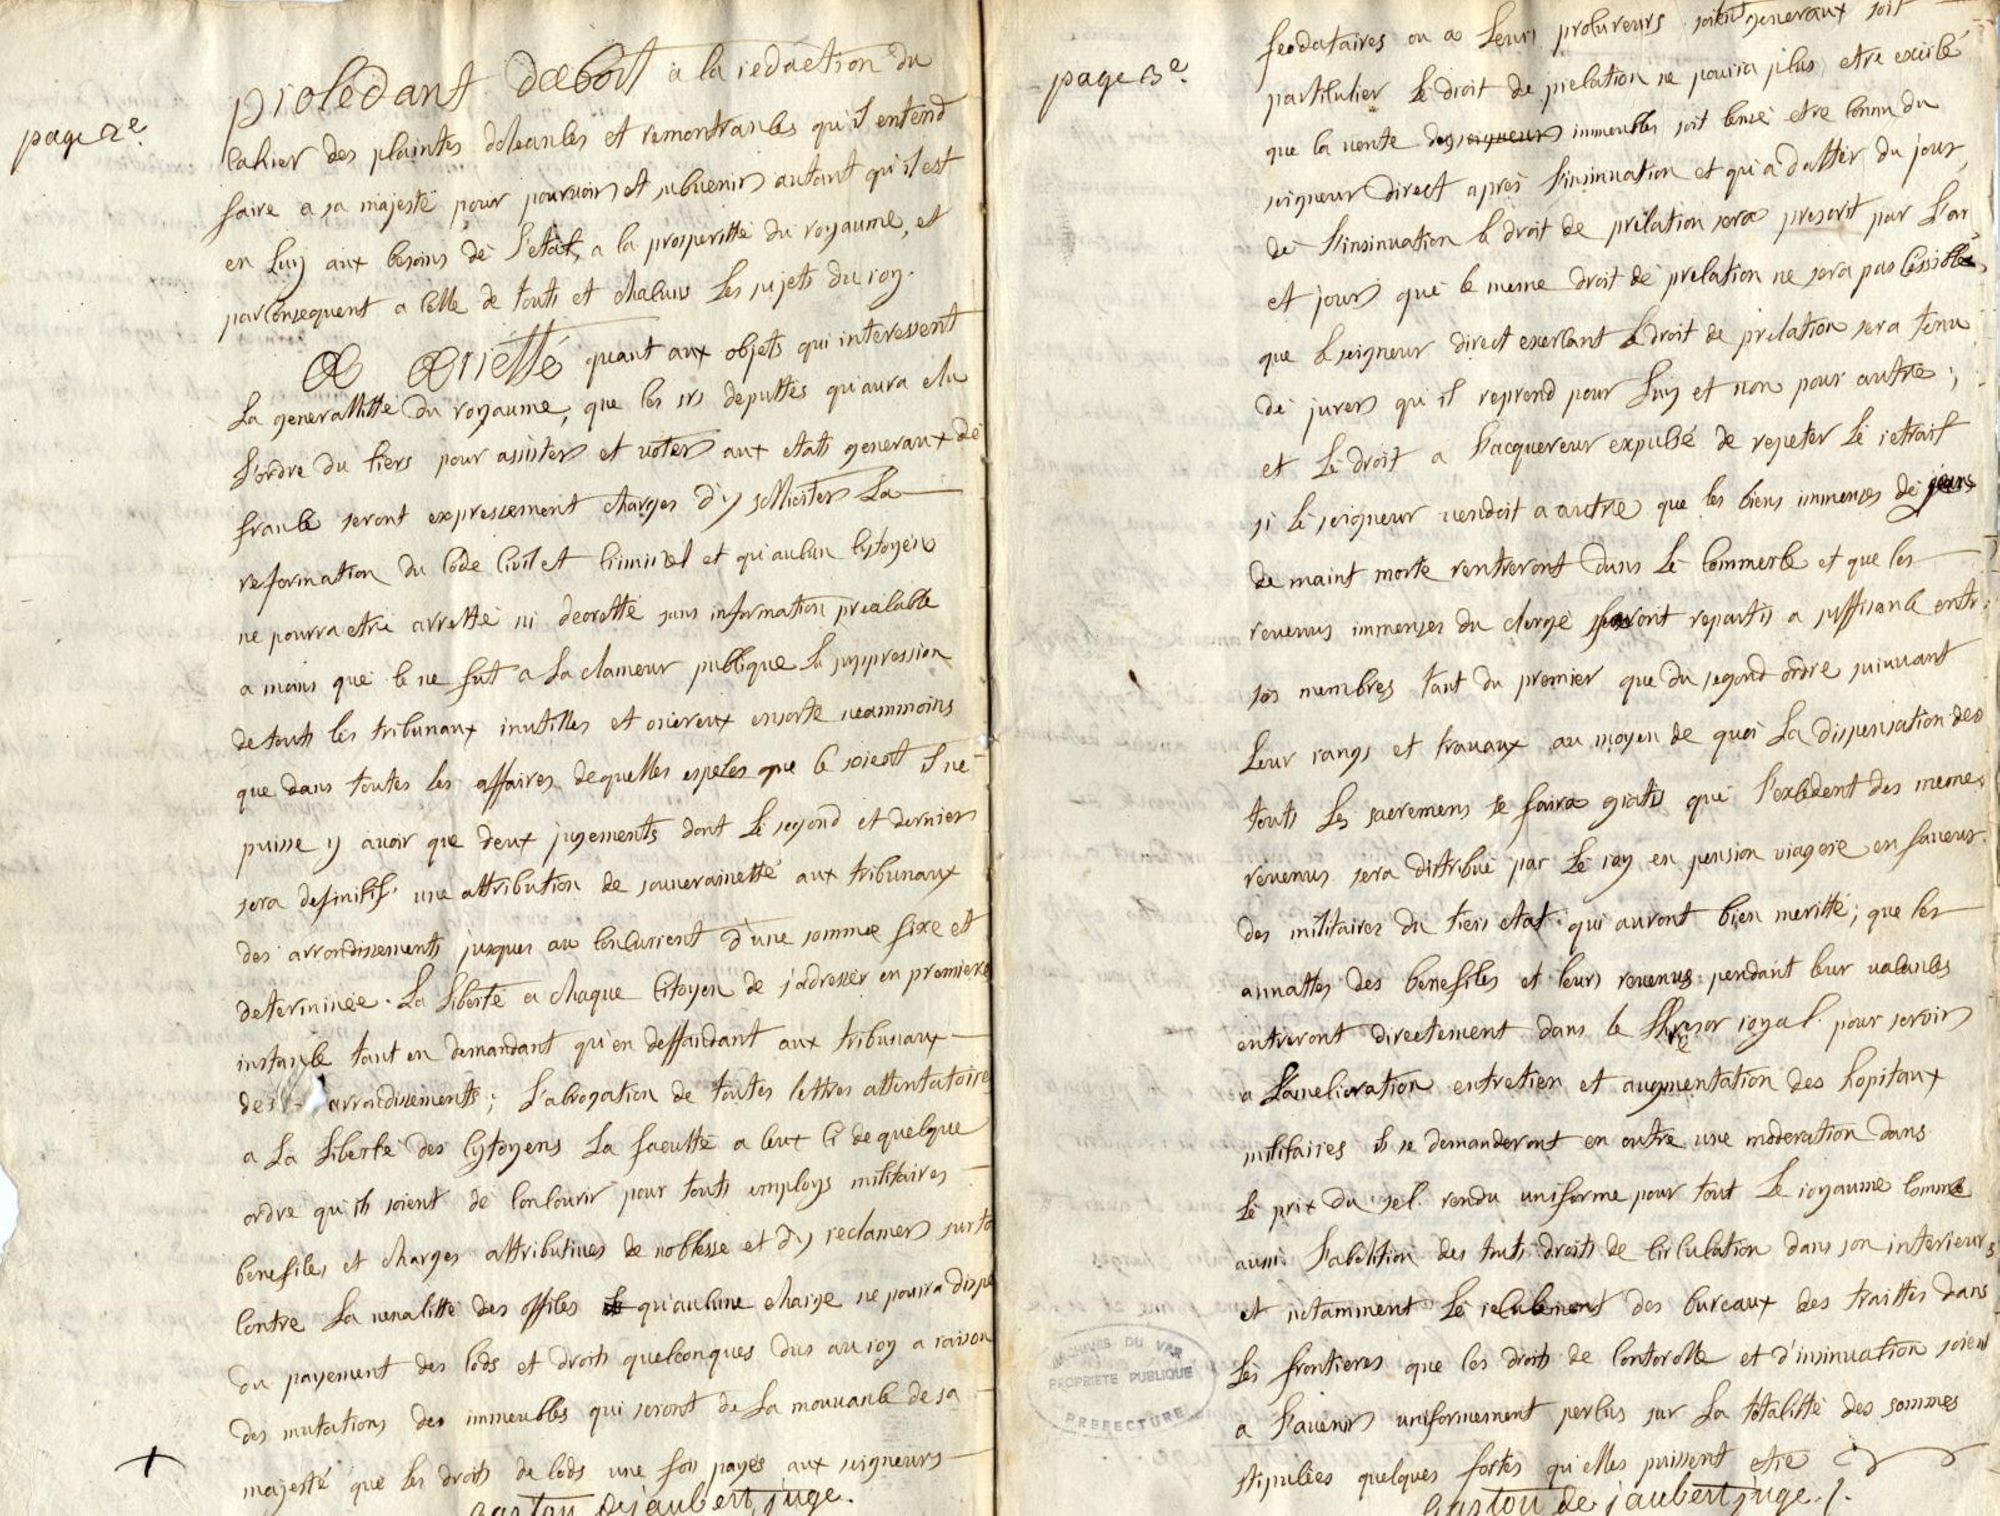 page 2e
procédant dabort a la redaction du
cahier des plaintes doleances et remontrances qu'il entend
faire a sa majesté pour pourvoir et subvenir autant qu'il est
en luy aux besoins de l'etat, a la prosperitté du royaume, et
par consequent a celle de touts et chacuns les sujets du roy.
a arretté quant aux objets qui interessent
la generallitté du royaume, que les srs deputtés qu'aura elu
l'ordre du tiers pour assister et voter aux etats generaux de
france seront expressement charges d'y solliciter la
reformation du code civil et criminel et qu'aucun cytoyen
ne pourra etre arretté ni decretté sans information prealable
a moins que ce ne fut a la clameur publique la suppression
de touts les tribunaux inutilles et onereux ensorte neammoins
que dans toutes les affaires de quelles especes que ce soient il ne
puisse y avoir que deux jugements dont le segond et dernier
sera definitif. une attribution de souverainetté aux tribunaux
des arrondissements jusques au concurrent d'une somme fixe et
determinée. la liberté a chaque citoyen de s'adresser en premiere
instance tant en demandant qu'en deffandant aux tribunaux
des arrondissements; l'abrogation de toutes lettres attentatoires
a la liberté des cytoyens la faculté a ceux ci de quelque
ordre qu'ils soient de concourir pour touts employs militaires
benefices et charges attributives de noblesse et d'y reclamer surto
contre la venalitté des offices qu'aucune charge ne pourra dispe
du payement des lods et droits quelconques dus au roy a raison
des mutations des immeubles qui seront de la mouvance de sa
majesté que les droits de lods une fois payés aux seigneurs
gaston de jaubert, juge.
page 3e
feodataires ou a leurs procureurs soient generaux soit
particulier le droit de prelation ne pourra plus etre exercé
que la vente des seigneurs immeubles soit censé etre connu du
seigneur direct apres l'insinuation et qu'a datter du jour
de l'insinuation le droit de prelation sera prescrit par l'an
et jour que le meme droit de prelation ne sera pas cessible,
que le seigneur direct exercant le droit de prelation sera tenu
de jurer qu'il reprend pour luy et non pour autre;
et le droit a l'acquereur expulsé de repeter le retrait
si le seigneur vendoit a autre que les biens immenses de gens
de maint morte rentreront dans le commerce et que les
revenus immenses du clergé seront repartis a suffisance entre
ses membres tant du premier que du segond ordre suivant
leur rangs et travaux au moyen de quoi la dispensation des
touts les sacremens se faira gratis que l'excédent des memes
revenus sera distribué par le roy en pension viagere en faveur
des militaires du tiers etat qui auront bien meritté; que les
annattes des benefices et leurs revenus pendant leur vacances
entreront directement dans le thresor royal pour servir
a l'amelioration entretien et augmentation des hopitaux
militaires ils se demanderont en outre une moderation dans
le prix du sel rendu uniforme pour tout le royaume comme
aussi l'abolition des touts droits de circulation dans son interieurs
et notamment le reculement des bureaux des traittes dans
les frontieres que les droits de controlle et d'insinuation soient
a l'avenir uniformement perçus sur la totalitté des sommes
stipulées quelques fortes qu'elles puissent etre
gaston de jaubert, juge.
ARCHIVES DU VAR
PROPRIETE PUBLIQUE
PREFECTURE